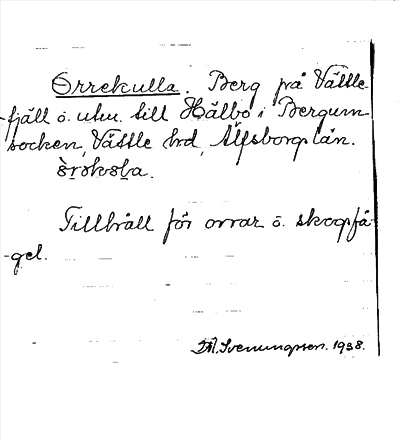 Orrekulla. Berg på Vättle-
fjäll ö. uhu. till Hälbo i Bergum
socken, Vättle hrd, Älfsborgs län.
Tillhåll för orrar o. skogsfå-
gel.
M. Svenungsson. 1938.